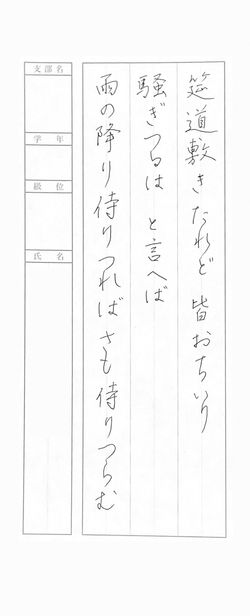 筵道敷きたれど 皆おちいり
騒ぎつるは と言へば
雨の降り侍りつれば さも侍りつらむ
支部名
学年
級位
氏名